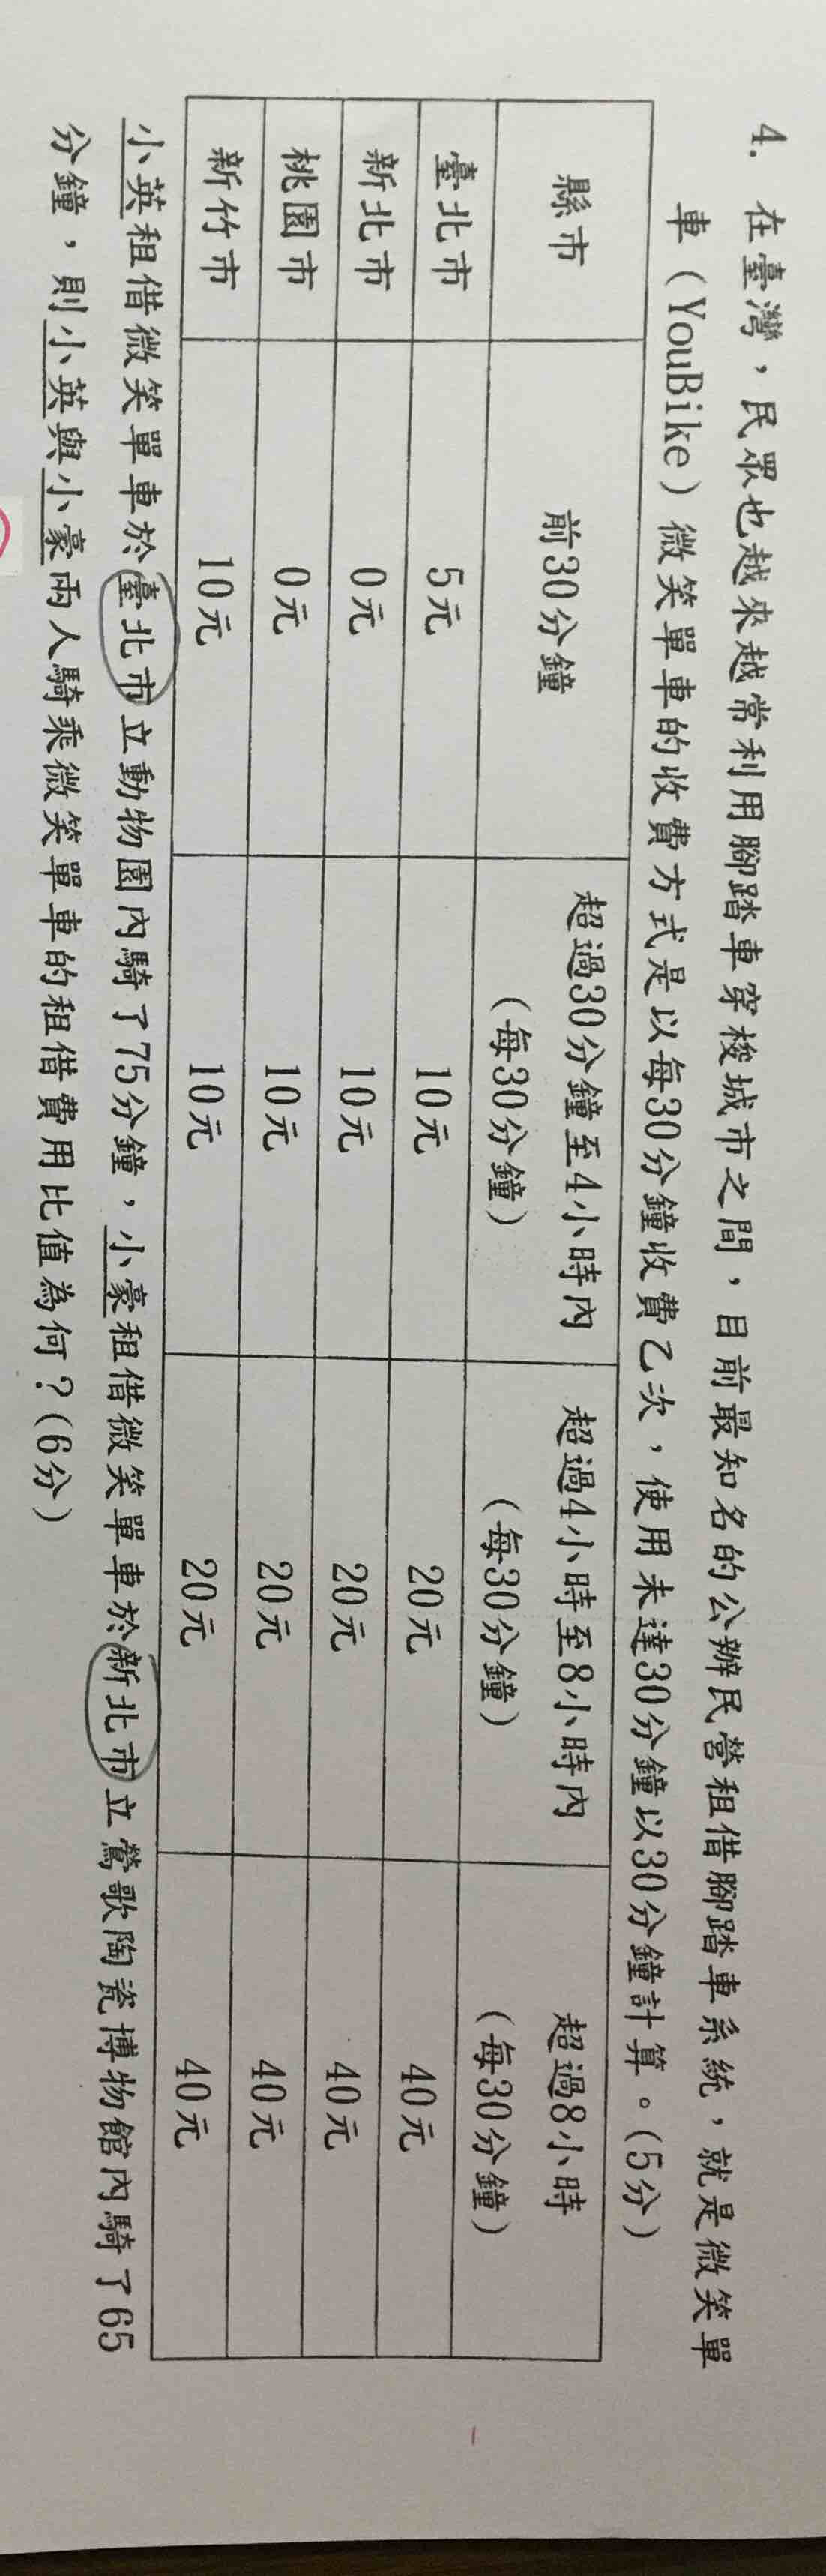 4. 在臺灣，民眾也越來越常利用腳踏車穿梭城市之間，目前最知名的公辦民營租借腳踏車系統，就是微笑單
車（YouBike）微笑單車的收費方式是以每30分鐘收費乙次，使用未達30分鐘以30分鐘計算。(5分)
縣市 前30分鐘 超過30分鐘至4小時內（每30分鐘） 超過4小時至8小時內（每30分鐘） 超過8小時（每30分鐘）
臺北市 5元 10元 20元 40元
新北市 0元 10元 20元 40元
桃園市 0元 10元 20元 40元
新竹市 10元 10元 20元 40元
小英租借微笑單車於臺北市立動物園內騎了75分鐘，小豪租借微笑單車於新北市立鶯歌陶瓷博物館內騎了65
分鐘，則小英與小豪兩人騎乘微笑單車的租借費用比值為何？(6分)